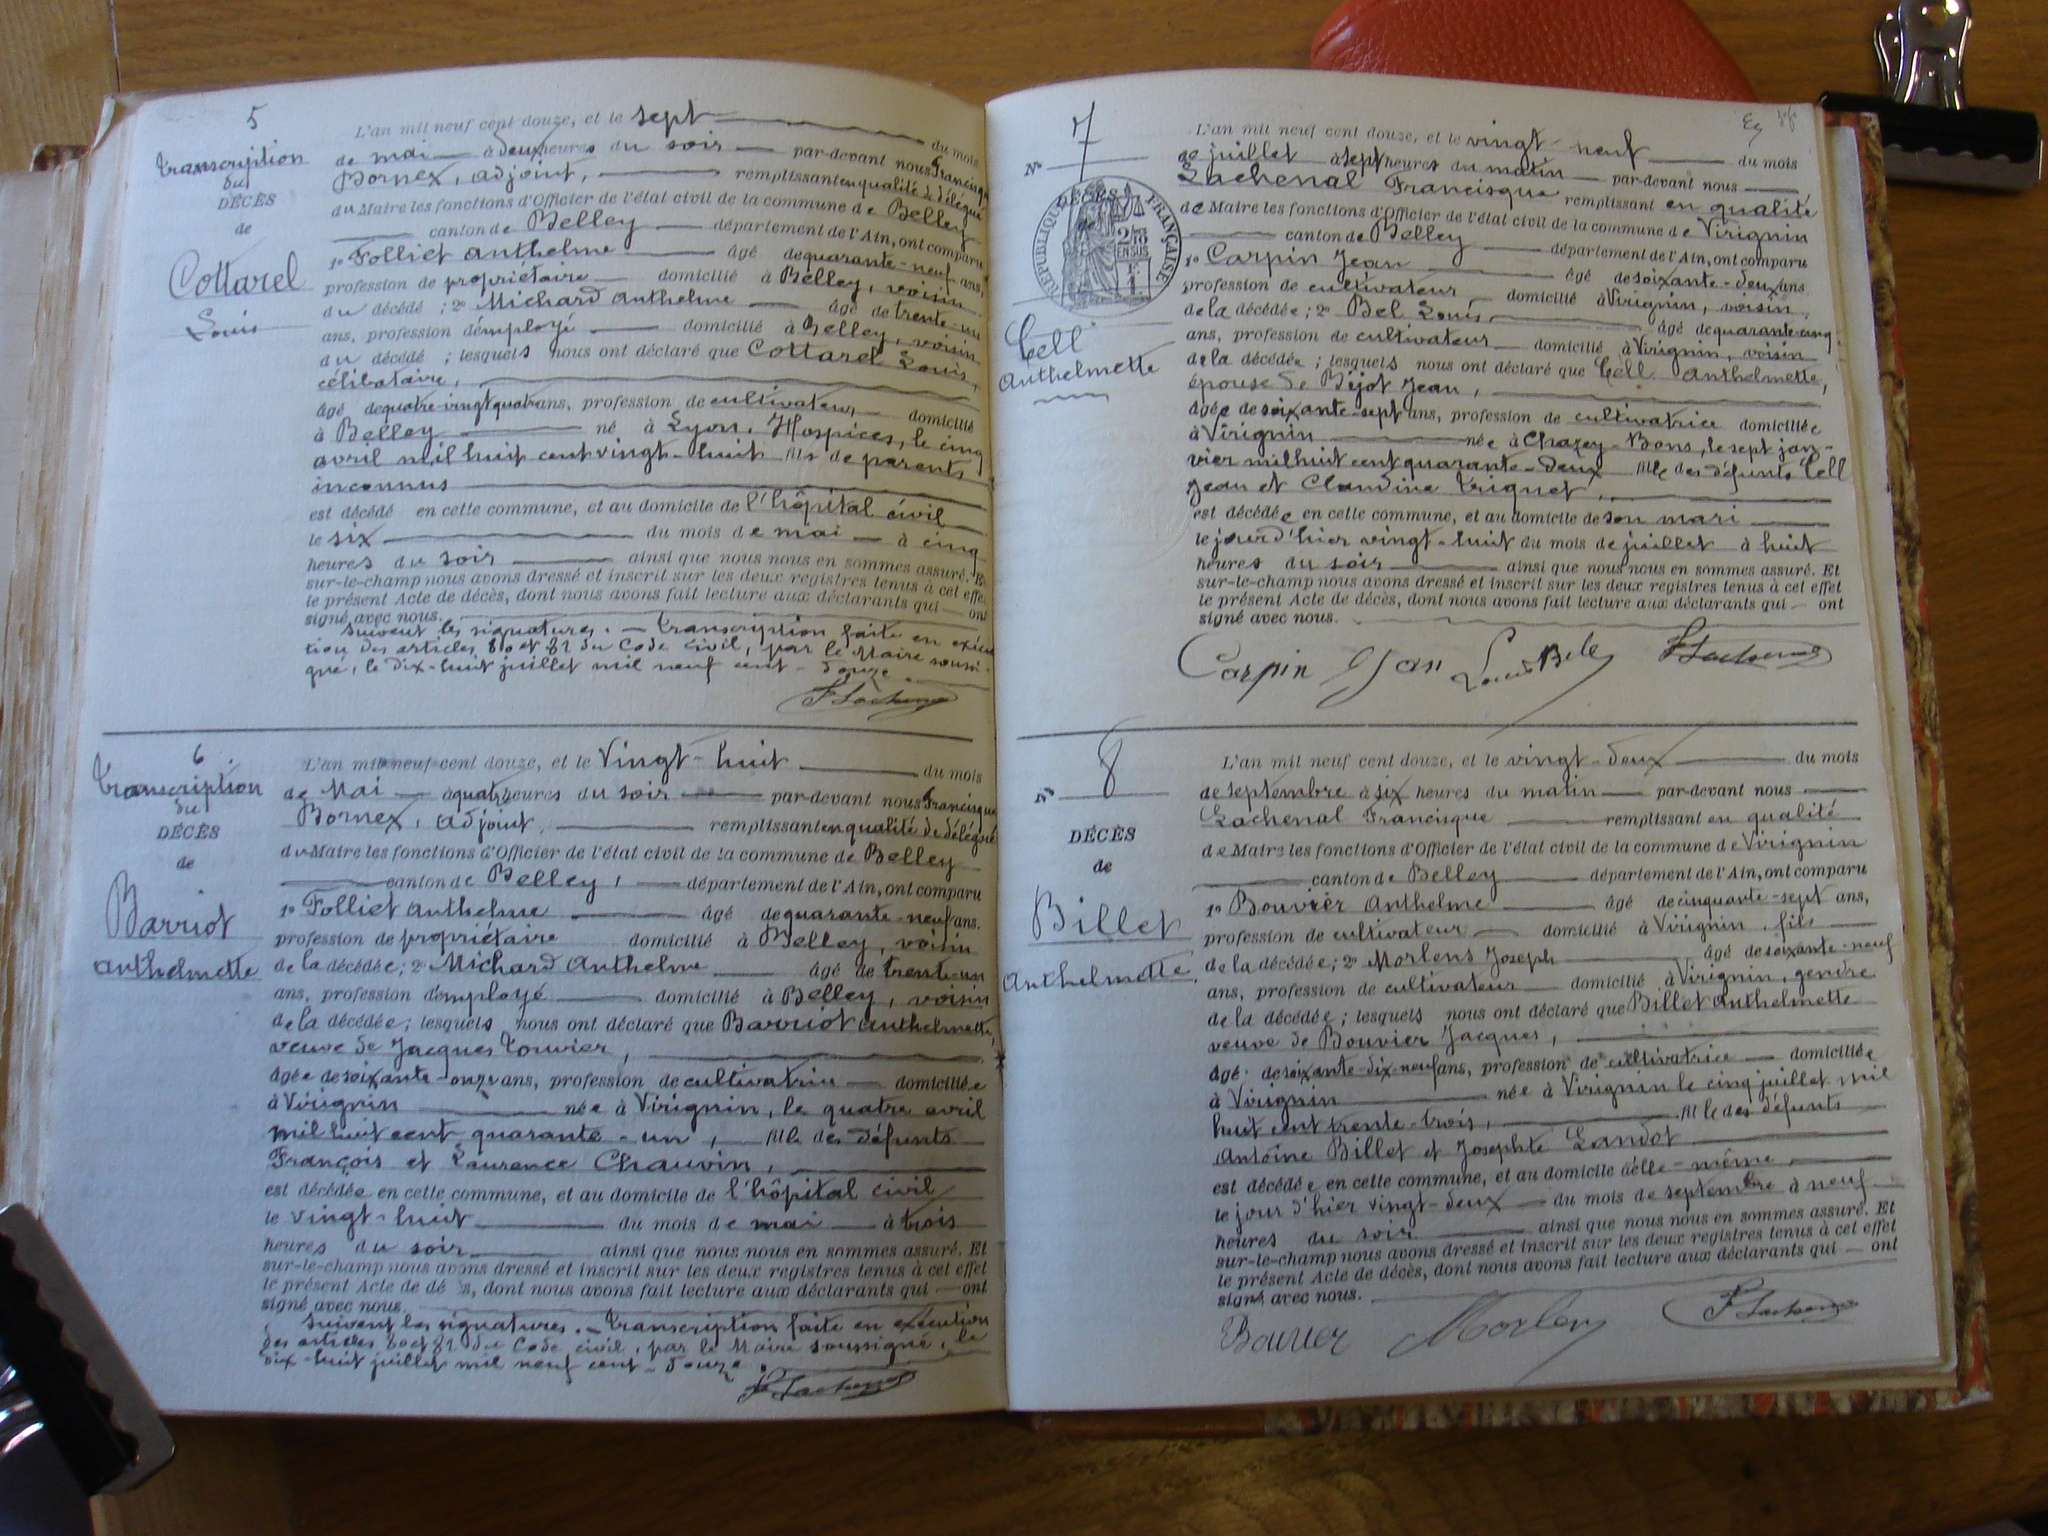 5
Transcription
du
DÉCÈS
de
Cottarel
Louis
L'an mil neuf cent douze, et le sept du mois
de mai à deux heures du soir par-devant nous Francisque
Bornex, adjoint, remplissant en qualité de délégué
du Maire les fonctions d'Officier de l'état civil de la commune de Belley
canton de Belley département de l'Ain, ont comparu
1º Folliet Anthelme âgé de quarante-neuf ans,
profession de propriétaire domicilié à Belley, voisin
du décédé ; 2º Michard Anthelme âgé de trente-un
ans, profession d'employé domicilié à Belley, voisin
du décédé ; lesquels nous ont déclaré que Cottarel Louis,
célibataire,
âgé de quatre-vingt quatre ans, profession de cultivateur domicilié
à Belley né à Lyon, Hospices, le cinq
avril mil huit cent vingt-huit fils de parents
inconnus
est décédé en cette commune, et au domicile de l'hôpital civil
le six du mois de mai à cinq
heures du soir ainsi que nous nous en sommes assuré. Et
sur-le-champ nous avons dressé et inscrit sur les deux registres tenus à cet effet
le présent Acte de décès, dont nous avons fait lecture aux déclarants qui ont
signé avec nous.
Suivent les signatures. — Transcription faite en exécu
tion des articles 80 et 82 du Code civil, par le Maire soussi-
gné, le dix-huit juillet mil neuf cent-douze.
F Lachenal
6
Transcription
du
DÉCÈS
de
Barriot
Anthelmette
L'an mil neuf cent douze, et le Vingt-huit du mois
de Mai à quatre heures du soir par-devant nous Francisque
Bornex, adjoint, remplissant en qualité de délégué
du Maire les fonctions d'Officier de l'état civil de la commune de Belley
canton de Belley, département de l'Ain, ont comparu
1º Folliet Anthelme âgé de quarante-neuf ans.
profession de propriétaire domicilié à Belley, voisin
de la décédée ; 2º Michard Anthelme âgé de trente-un
ans, profession d'employé domicilié à Belley, voisin
de la décédée ; lesquels nous ont déclaré que Barriot Anthelmette,
veuve de Jacques Bouvier,
âgée de soixante-onze ans, profession de cultivatrice domiciliée
à Virignin née à Virignin, le quatre avril
mil huit cent quarante-un, fille des défunts
François et Laurence Chauvin,
est décédée en cette commune, et au domicile de l'hôpital civil
le vingt-huit du mois de mai à trois
heures du soir ainsi que nous nous en sommes assuré. Et
sur-le-champ nous avons dressé et inscrit sur les deux registres tenus à cet effet
le présent Acte de dé s, dont nous avons fait lecture aux déclarants qui ont
signé avec nous.
Suivent les signatures. — Transcription faite en exécution
des articles 80 et 82 du Code civil, par le Maire soussigné, le
dix-huit juillet mil neuf cent-douze.
F. Lachenal
Nº 7
DÉCÈS
RÉPUBLIQUE FRANÇAISE
Cell
Anthelmette
L'an mil neuf cent douze, et le vingt-neuf du mois
de juillet à sept heures du matin par-devant nous
Lachenal Francisque remplissant en qualité
de Maire les fonctions d'Officier de l'état civil de la commune de Virignin
canton de Belley département de l'Ain, ont comparu
1º Carpin Jean âgé de soixante-deux ans
profession de cultivateur domicilié à Virignin, voisin,
de la décédée ; 2º Bel Louis, âgé de quarante-cinq
ans, profession de cultivateur domicilié à Virignin, voisin
de la décédée ; lesquels nous ont déclaré que Cell Anthelmette,
épouse de Bijot Jean,
âgée de soixante-sept ans, profession de cultivatrice domiciliée
à Virignin née à Chazey-Bons, le sept jan-
vier mil huit cent quarante-deux fille des défunts Cell
Jean et Claudine Triquet,
est décédée en cette commune, et au domicile de son mari
le jour d'hier vingt-huit du mois de juillet à huit
heures du soir ainsi que nous nous en sommes assuré. Et
sur-le-champ nous avons dressé et inscrit sur les deux registres tenus à cet effet
le présent Acte de décès, dont nous avons fait lecture aux déclarants qui ont
signé avec nous.
Carpin Jean Louis Bel F Lachenal
Nº 8
DÉCÈS
de
Billet
Anthelmette
L'an mil neuf cent douze, et le vingt-deux du mois
de septembre à six heures du matin par-devant nous
Lachenal Francisque remplissant en qualité
de Maire les fonctions d'Officier de l'état civil de la commune de Virignin
canton de Belley département de l'Ain, ont comparu
1º Bouvier Anthelme âgé de cinquante-sept ans,
profession de cultivateur domicilié à Virignin, fils
de la décédée ; 2º Morlens Joseph âgé de soixante-neuf
ans, profession de cultivateur domicilié à Virignin, gendre
de la décédée ; lesquels nous ont déclaré que Billet Anthelmette
veuve de Bouvier Jacques,
âgé de soixante-dix-neuf ans, profession de cultivatrice domiciliée
à Virignin née à Virignin le cinq juillet mil
huit cent trente-trois, fille des défunts
Antoine Billet et Josephte Landot
est décédée en cette commune, et au domicile d'elle-même,
le jour d'hier vingt-deux du mois de septembre à neuf
heures du soir ainsi que nous nous en sommes assuré. Et
sur-le-champ nous avons dressé et inscrit sur les deux registres tenus à cet effet
le présent Acte de décès, dont nous avons fait lecture aux déclarants qui ont
signé avec nous.
Bouvier Morlens F Lachenal